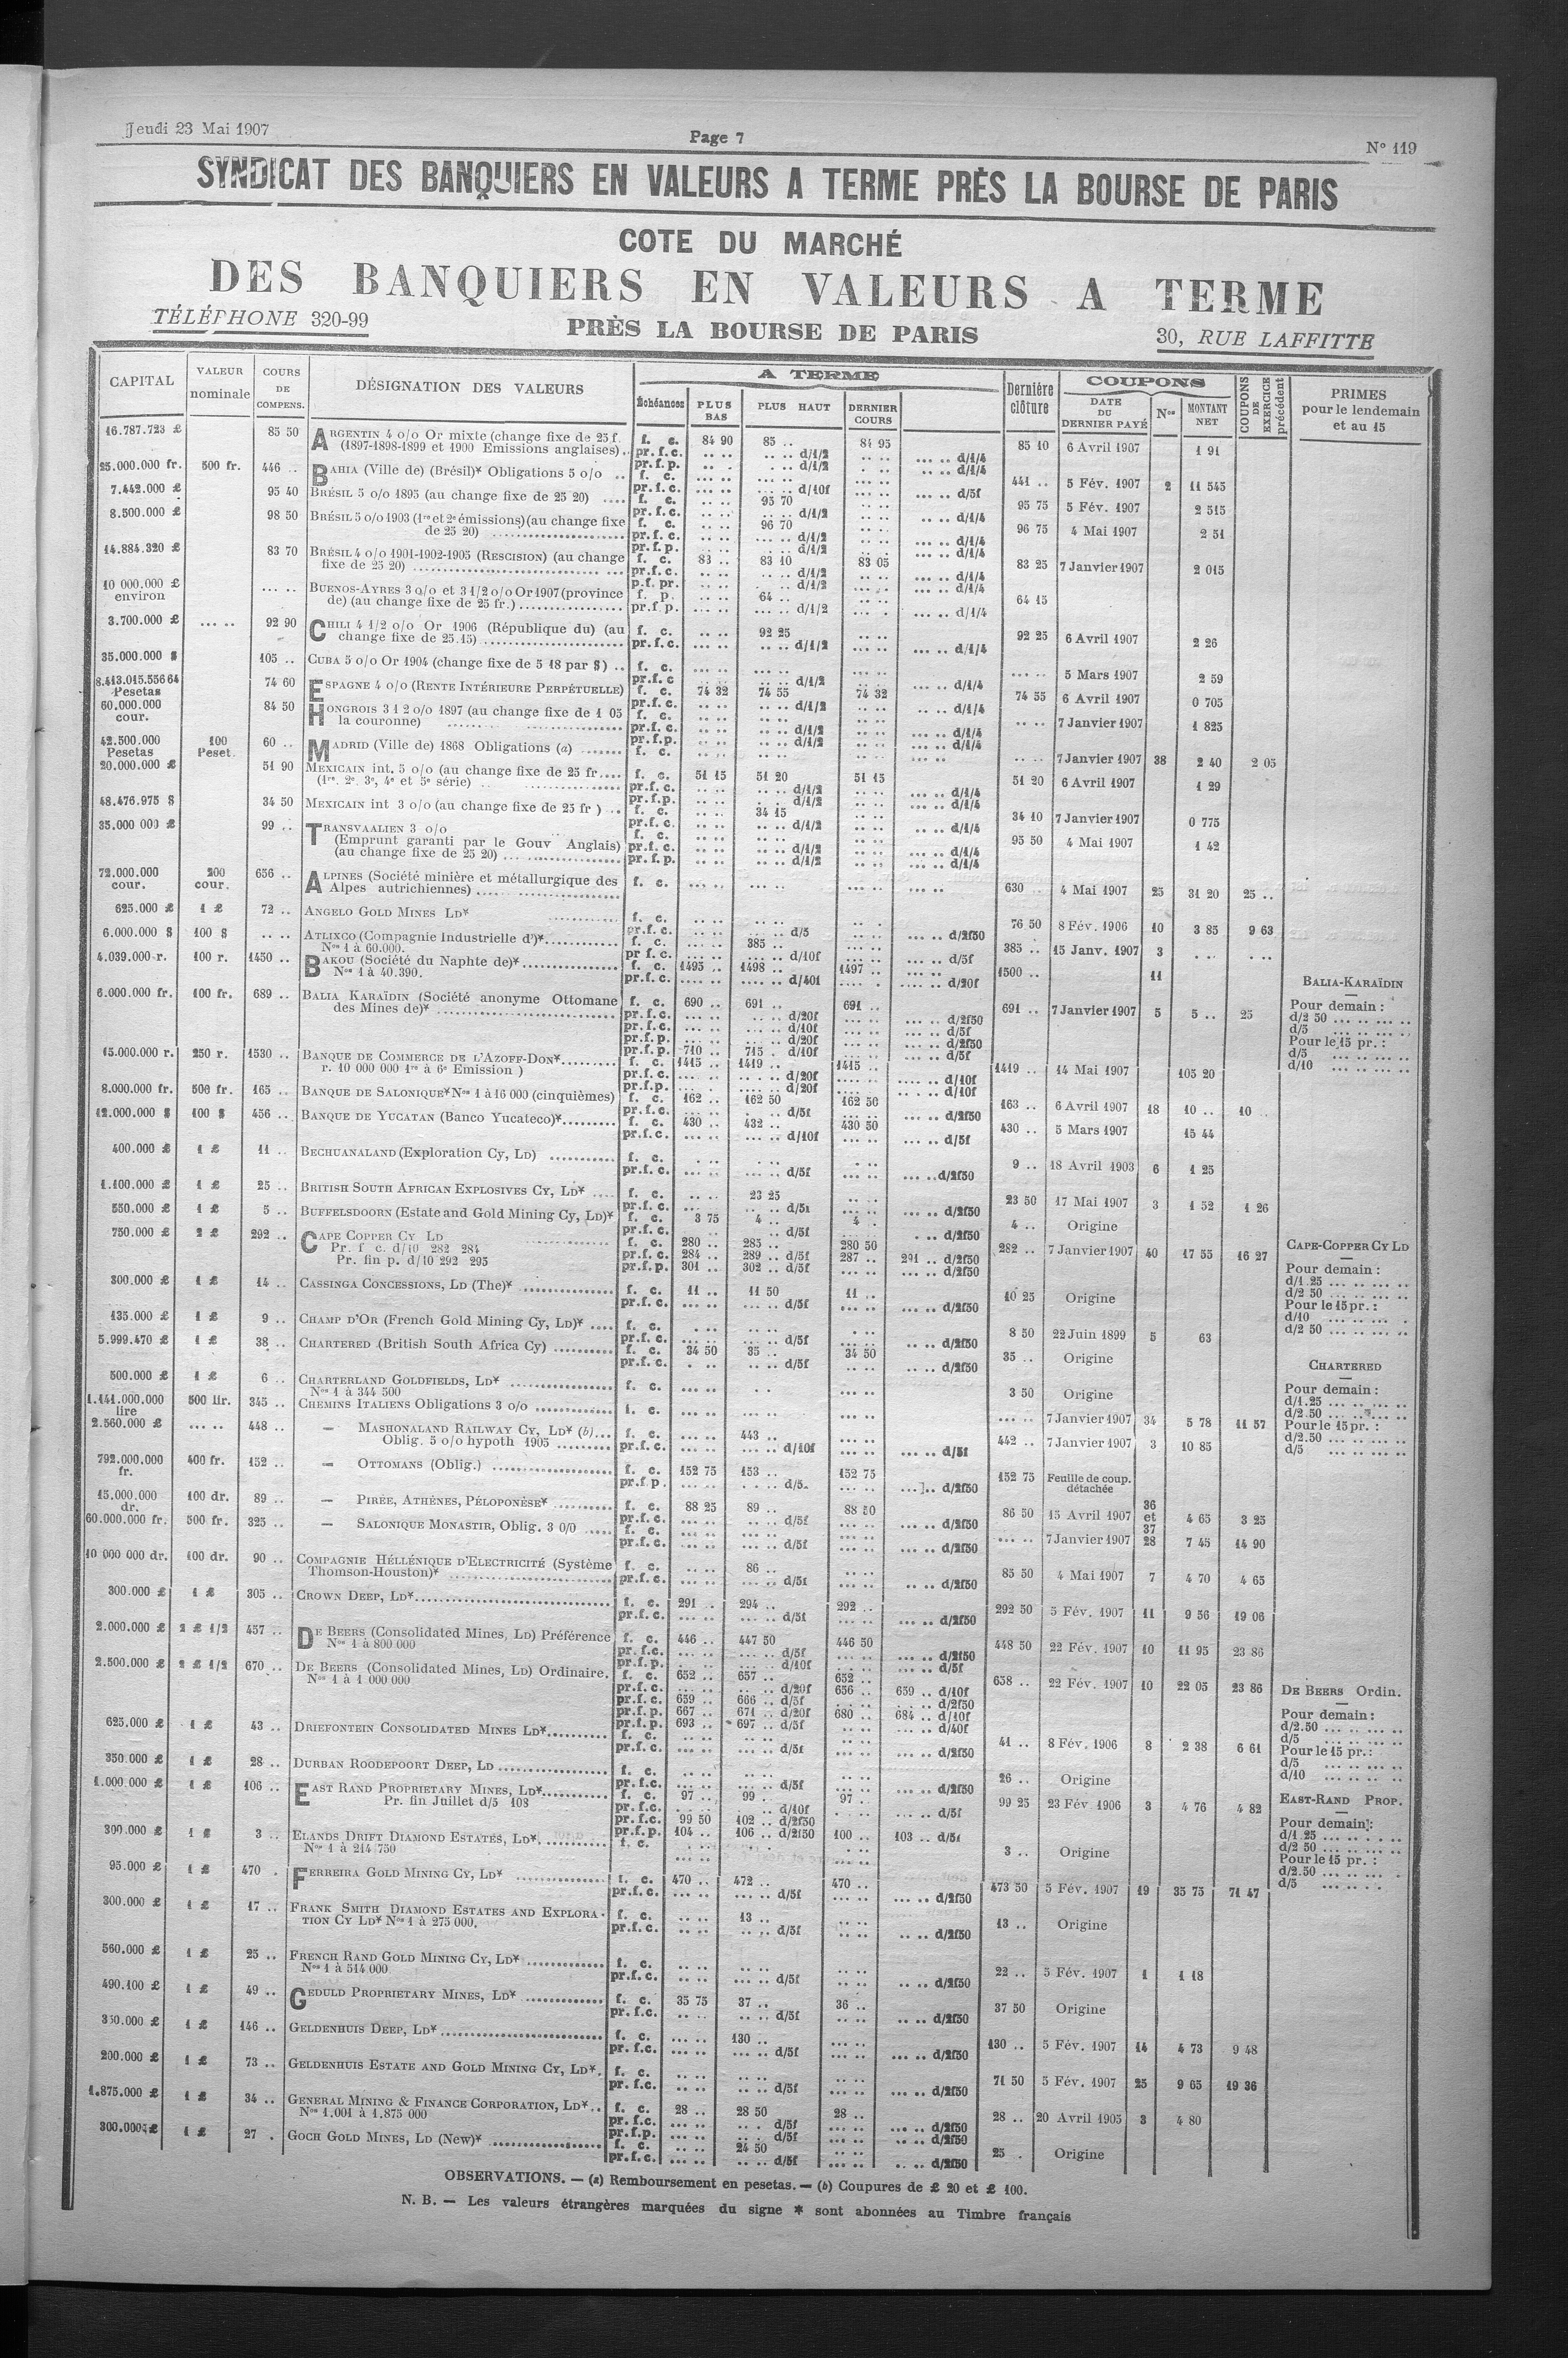 Jeudi 23 Mai 1907
Page 7
N° 119
SYNDICAT DES BANQUIERS EN VALEURS A TERME PRÈS LA BOURSE DE PARIS
COTE DU MARCHÉ
DES BANQUIERS EN VALEURS A TERME
TÉLÉPHONE 320-99
PRÈS LA BOURSE DE PARIS
30, RUE LAFFITTE
CAPITAL | VALEUR nominale | COURS DE COMPENS. | DÉSIGNATION DES VALEURS | A TERME | Dernière clôture | COUPONS | COUPONS DE EXERCICE précédent | PRIMES pour le lendemain et au 15
Échéances | PLUS BAS | PLUS HAUT | DERNIER COURS | DATE DU DERNIER PAYÉ | Nos | MONTANT NET
16.787.723 £ 85 50 ARGENTIN 4 o/o Or mixte (change fixe de 25 f. f. c. 84 90 85 .. 84 95 85 10 6 Avril 1907 1 91
(1897-1898-1899 et 1900 Emissions anglaises).. pr. f. c. .. .. .. .. d/1/2 .. .. ... .. d/1/4
25.000.000 fr. 500 fr. 446 .. BAHIA (Ville de) (Brésil)* Obligations 5 o/o .. f. c. 441 .. 5 Fév. 1907 2 11 545
7.442.000 £ 95 40 BRÉSIL 5 o/o 1895 (au change fixe de 25 20) .... f. c. 95 70 95 75 5 Fév. 1907 2 515
8.500.000 £ 98 50 BRÉSIL 5 o/o 1903 (1re et 2e émissions) (au change fixe f. c. 96 70 96 75 4 Mai 1907 2 51
de 25 20)
14.884.320 £ 83 70 BRÉSIL 4 o/o 1901-1902-1905 (RESCISION) (au change f. c. 83 .. 83 10 83 05 83 25 7 Janvier 1907 2 015
fixe de 25 20)
10 000.000 £ environ ... .. BUENOS-AYRES 3 o/o et 3 1/2 o/o Or 1907 (province f. p. 64 .. 64 15
de) (au change fixe de 25 fr.) pr. f. p. d/1/2 d/1/4
3.700.000 £ ... .. 92 90 CHILI 4 1/2 o/o Or 1906 (République du) (au f. c. 92 25 92 25 6 Avril 1907 2 26
change fixe de 25.15) pr. f. c. d/1/2 d/1/4
35.000.000 $ 105 .. CUBA 5 o/o Or 1904 (change fixe de 5 18 par $) .. f. c. 5 Mars 1907 2 59
8.413.015.556 64 Pesetas 74 60 ESPAGNE 4 o/o (RENTE INTÉRIEURE PERPÉTUELLE) f. c. 74 32 74 55 74 32 74 55 6 Avril 1907 0 705
60.000.000 cour. 84 50 HONGROIS 3 1 2 o/o 1897 (au change fixe de 1 05 f. c. 7 Janvier 1907 1 825
la couronne)
42.500.000 Pesetas 100 Peset. 60 .. MADRID (Ville de) 1868 Obligations (a) f. c. 7 Janvier 1907 38 2 40 2 05
20.000.000 £ 51 90 MEXICAIN int. 5 o/o (au change fixe de 25 fr.... f. c. 51 15 51 20 51 15 51 20 6 Avril 1907 1 29
(1re, 2e, 3e, 4e et 5e série)
48.476.975 $ 34 50 MEXICAIN int 3 o/o (au change fixe de 25 fr ) .. f. c. 34 15 34 10 7 Janvier 1907 0 775
35.000 000 £ 99 .. TRANSVAALIEN 3 o/o f. c. 95 50 4 Mai 1907 1 42
(Emprunt garanti par le Gouv Anglais) pr. f. c. d/1/2 d/1/4
(au change fixe de 25 20) pr. f. p. d/1/2 d/1/4
72.000.000 cour. 200 cour. 656 .. ALPINES (Société minière et métallurgique des f. c. 630 .. 4 Mai 1907 25 31 20 25 ..
Alpes autrichiennes)
625.000 £ 1 £ 72 .. ANGELO GOLD MINES LD* f. c. 76 50 8 Fév. 1906 10 3 85 9 63
6.000.000 $ 100 $ .. .. ATLIXCO (Compagnie Industrielle d')* f. c. 385 .. 385 .. 15 Janv. 1907 3
Nos 1 à 60.000. pr f. c. d/10f d/5f
4.039.000 r. 100 r. 1450 .. BAKOU (Société du Naphte de)* f. c. 1495 .. 1498 .. 1497 .. 1500 .. 11
Nos 1 à 40.390. pr. f. c. d/40f d/20f
6.000.000 fr. 100 fr. 689 .. BALIA KARAÏDIN (Société anonyme Ottomane f. c. 690 .. 691 .. 691 .. 691 .. 7 Janvier 1907 5 5 .. 25
des Mines de)* pr. f. c. d/20f d/2f50
pr. f. c. d/10f d/5f
pr. f. p. d/20f d/2f50
pr. f. p. 710 .. 715 . d/10f d/5f
15.000.000 r. 250 r. 1530 .. BANQUE DE COMMERCE DE L'AZOFF-DON* f. c. 1415 .. 1419 .. 1415 .. 1419 .. 14 Mai 1907 105 20
r. 10 000 000 1re à 6e Emission ) pr. f. c. d/20f d/10f
8.000.000 fr. 500 fr. 165 .. BANQUE DE SALONIQUE* Nos 1 à 16 000 (cinquièmes) f. c. 162 .. 162 50 162 50 163 .. 6 Avril 1907 18 10 .. 10 ..
12.000.000 $ 100 $ 456 .. BANQUE DE YUCATAN (Banco Yucateco)* f. c. 430 .. 432 .. 430 50 430 .. 5 Mars 1907 15 44
400.000 £ 1 £ 11 .. BECHUANALAND (Exploration Cy, LD) f. c. 9 .. 18 Avril 1903 6 1 25
1.100.000 £ 1 £ 25 .. BRITISH SOUTH AFRICAN EXPLOSIVES CY, LD* f. c. 23 25 23 50 17 Mai 1907 3 1 52 1 26
550.000 £ 1 £ 5 .. BUFFELSDOORN (Estate and Gold Mining Cy, LD)* f. c. 3 75 4 .. 4 .. 4 .. Origine
750.000 £ 2 £ 292 .. CAPE COPPER CY LD f. c. 280 .. 285 .. 280 50 282 .. 7 Janvier 1907 40 17 55 16 27
Pr. f c. d/10 282 284 pr. f. c. 284 .. 289 .. d/5f 287 .. 291 .. d/2f50
Pr. fin p. d/10 292 295 pr. f. p. 301 .. 302 .. d/5f d/2f50
300.000 £ 1 £ 14 .. CASSINGA CONCESSIONS, LD (The)* f. c. 11 .. 11 50 11 .. 10 25 Origine
135.000 £ 1 £ 9 .. CHAMP D'OR (French Gold Mining Cy, LD)* f. c. 8 50 22 Juin 1899 5 63
5.999.470 £ 1 £ 38 .. CHARTERED (British South Africa Cy) f. c. 34 50 35 .. 34 50 35 .. Origine
500.000 £ 1 £ 6 .. CHARTERLAND GOLDFIELDS, LD* f. c. 3 50 Origine
Nos 1 à 344 500
1.141.000.000 lire 500 lir. 345 .. CHEMINS ITALIENS Obligations 3 o/o f. c. 7 Janvier 1907 34 5 78 11 57
2.560.000 £ ... .. 448 .. — MASHONALAND RAILWAY CY, LD* (b)... f. c. 443 .. 442 .. 7 Janvier 1907 3 10 85
Oblig. 5 o/o hypoth 1905 pr. f. c. d/10f d/5f
792.000.000 fr. 400 fr. 152 .. — OTTOMANS (Oblig.) f. c. 152 75 153 .. 152 75 152 75 Feuille de coup. détachée
15.000.000 dr. 100 dr. 89 .. — PIRÉE, ATHÈNES, PÉLOPONÈSE* f. c. 88 25 89 .. 88 50 86 50 15 Avril 1907 36 et 37 4 65 3 25
60.000.000 fr. 500 fr. 325 .. — SALONIQUE MONASTIR, Oblig. 3 0/0 f. c. 7 Janvier 1907 28 7 45 14 90
10 000 000 dr. 100 dr. 90 .. COMPAGNIE HÉLLÉNIQUE D'ELECTRICITÉ (Système f. c. 86 .. 85 50 4 Mai 1907 7 4 70 4 65
Thomson-Houston)*
300.000 £ 1 £ 305 .. CROWN DEEP, LD* f. c. 291 .. 294 .. 292 .. 292 50 5 Fév. 1907 11 9 56 19 06
2.000.000 £ 2 £ 1/2 457 .. DE BEERS (Consolidated Mines, LD) Préférence f. c. 446 .. 447 50 446 50 448 50 22 Fév. 1907 10 11 95 23 86
Nos 1 à 800 000
2.500.000 £ 2 £ 1/2 670 .. DE BEERS (Consolidated Mines, LD) Ordinaire. f. c. 652 .. 657 .. 652 .. 658 .. 22 Fév. 1907 10 22 05 23 86
Nos 1 à 1 000 000 pr. f. c. d/20f 656 .. 659 .. d/10f
pr. f. c. 659 .. 666 .. d/5f d/2f50
pr. f. p. 667 .. 671 .. d/20f 680 .. 684 .. d/10f
pr. f. p. 693 .. 697 .. d/5f d/40f
625.000 £ 1 £ 43 .. DRIEFONTEIN CONSOLIDATED MINES LD* f. c. 41 .. 8 Fév. 1906 8 2 38 6 61
350.000 £ 1 £ 28 .. DURBAN ROODEPOORT DEEP, LD f. c. 26 .. Origine
1.000.000 £ 1 £ 106 .. EAST RAND PROPRIETARY MINES, LD* f. c. 97 .. 99 .. 97 .. 99 25 23 Fév. 1906 3 4 76 4 82
Pr. fin Juillet d/5 108 pr. f. c. d/10f d/5f
pr. f. c. 99 50 102 .. d/2f50
pr. f. p. 104 .. 106 .. d/2f50 100 .. 103 .. d/5f
300.000 £ 1 £ 3 .. ELANDS DRIFT DIAMOND ESTATES, LD*. f. c. 3 .. Origine
Nos 1 à 214 750
95.000 £ 1 £ 470 . FERREIRA GOLD MINING CY, LD* f. c. 470 .. 472 .. 470 .. 473 50 5 Fév. 1907 19 35 75 71 47
300.000 £ 1 £ 17 .. FRANK SMITH DIAMOND ESTATES AND EXPLORA- f. c. 13 .. 13 .. Origine
TION CY LD* Nos 1 à 275 000.
560.000 £ 1 £ 25 .. FRENCH RAND GOLD MINING CY, LD* f. c. 22 .. 5 Fév. 1907 1 1 18
Nos 1 à 514 000
490.100 £ 1 £ 49 .. GEDULD PROPRIETARY MINES, LD* f. c. 35 75 37 .. 36 .. 37 50 Origine
350.000 £ 1 £ 146 .. GELDENHUIS DEEP, LD* f. c. 130 .. 130 .. 5 Fév. 1907 14 4 73 9 48
200.000 £ 1 £ 73 .. GELDENHUIS ESTATE AND GOLD MINING CY, LD*. f. c. 71 50 5 Fév. 1907 25 9 65 19 36
1.875.000 £ 1 £ 34 .. GENERAL MINING & FINANCE CORPORATION, LD*.. f. c. 28 .. 28 50 28 .. 28 .. 20 Avril 1905 3 4 80
Nos 1.001 à 1.875 000
300.000 £ 1 £ 27 . GOCH GOLD MINES, LD (New)* f. c. 24 50 25 . Origine
pr. f. c. d/5f d/2f50
BALIA-KARAÏDIN
Pour demain :
d/2 50 ... .. ... ..
d/5 ... .. ... ..
Pour le 15 pr. :
d/5 ... .. ... ..
d/10 ... .. ... ..
CAPE-COPPER CY LD
Pour demain :
d/1 25 ... .. ... ..
d/2 50 ... .. ... ..
Pour le 15 pr. :
d/10 ... .. ... .
d/2 50 ... .. ... ..
CHARTERED
Pour demain :
d/1.25 ... .. ... ..
d/2.50 ... .. ... ..
Pour le 15 pr. :
d/2.50 ... .. ... ..
d/5 ... .. ... ..
DE BEERS Ordin.
Pour demain :
d/2.50 ... .. ... ..
d/5 ... .. ... ..
Pour le 15 pr. :
d/5 ... .. ... ..
d/10 ... .. ... ..
EAST-RAND PROP.
Pour demain :
d/1 25 ... .. . . ..
d/2 50 ... .. ... ..
Pour le 15 pr. :
d/2.50 ... .. ... .
d/5 ... .. . .
OBSERVATIONS. — (a) Remboursement en pesetas. — (b) Coupures de £ 20 et £ 100.
N. B. — Les valeurs étrangères marquées du signe * sont abonnées au Timbre français